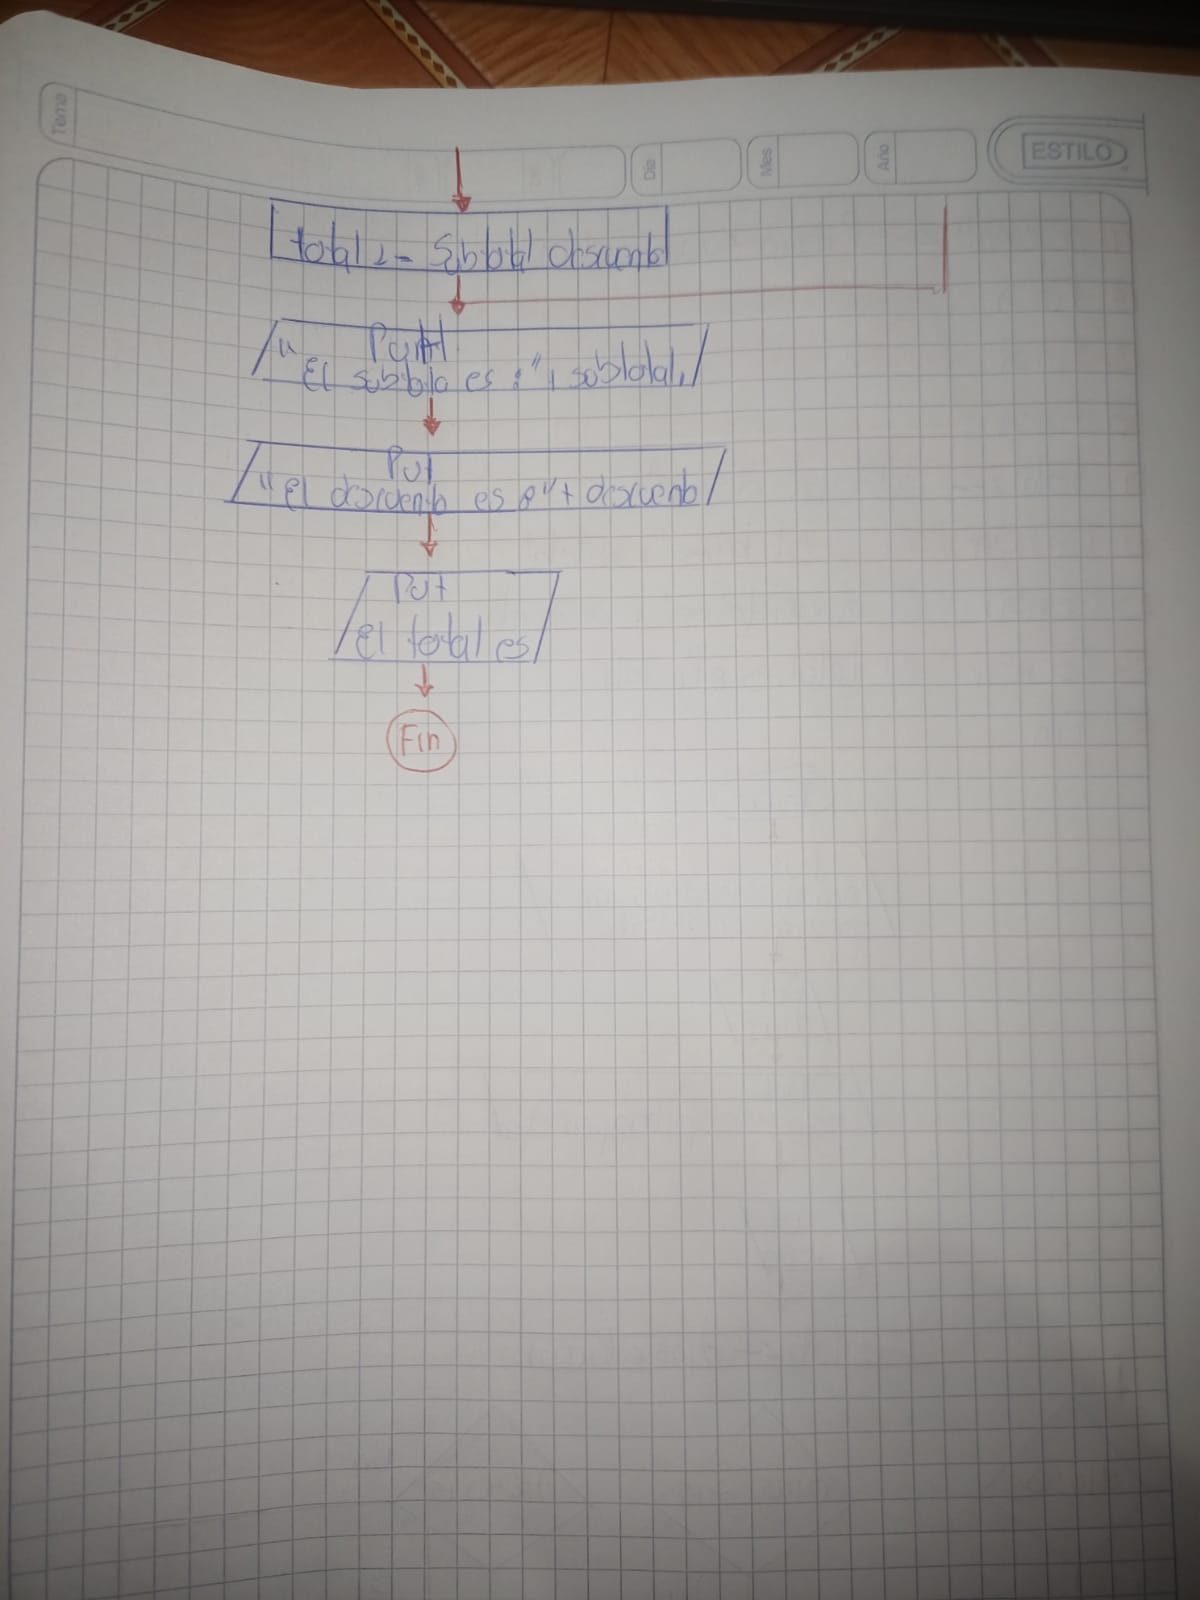 Tema
Dia
Mes
Año
ESTILO
total <- Subtotal descuento
Put
"El subtotal es :", subtotal,
Put
"el descuento es :"+ descuento
Put
el total es
Fin